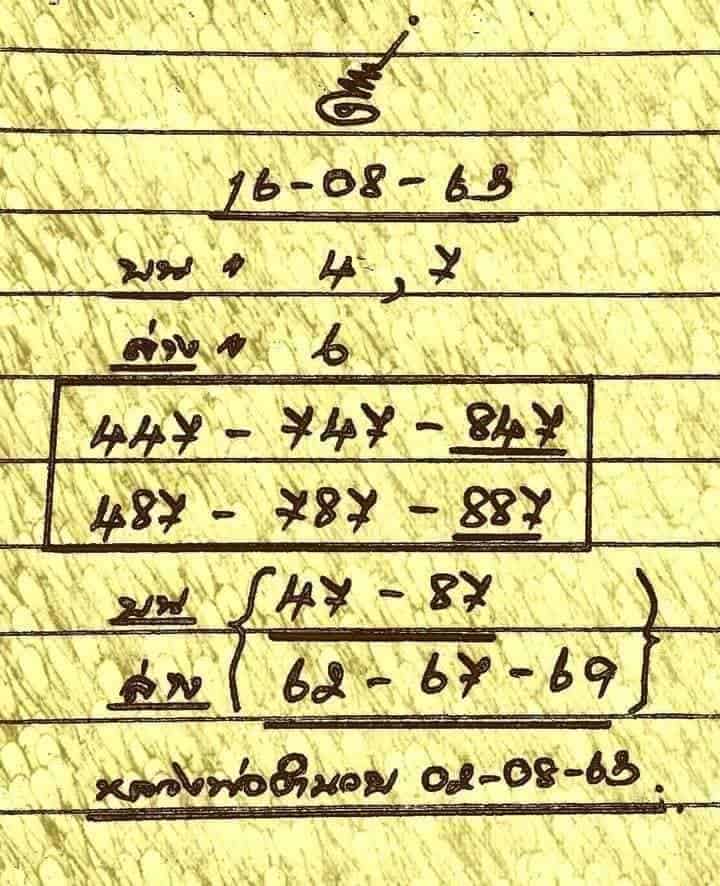 16-08-63
บน " 4, 7
ล่าง " 6
447 - 747 - 847
487 - 787 - 887
บน { 47 - 87 }
ล่าง { 62 - 67 - 69 }
หลวงพ่อ 02-08-63